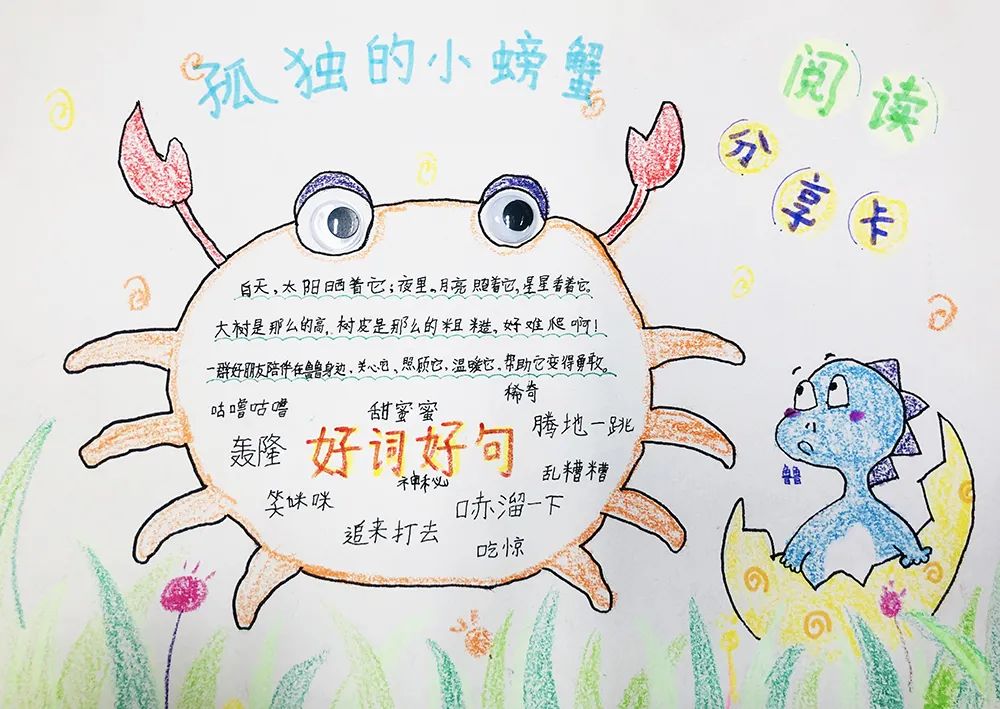 孤独的小螃蟹
阅读
分享卡
白天，太阳晒着它；夜里，月亮照着它，星星看着它。
大树是那么的高，树皮是那么的粗糙，好难爬啊！
一群好朋友陪伴在鲁鲁身边，关心它、照顾它，温暖它，帮助它变得勇敢。
稀奇
咕噜咕噜 甜蜜蜜
腾地一跳
轰隆 好词好句
乱糟糟
神秘
笑咪咪 哧溜一下
追来打去
吃惊
鲁鲁